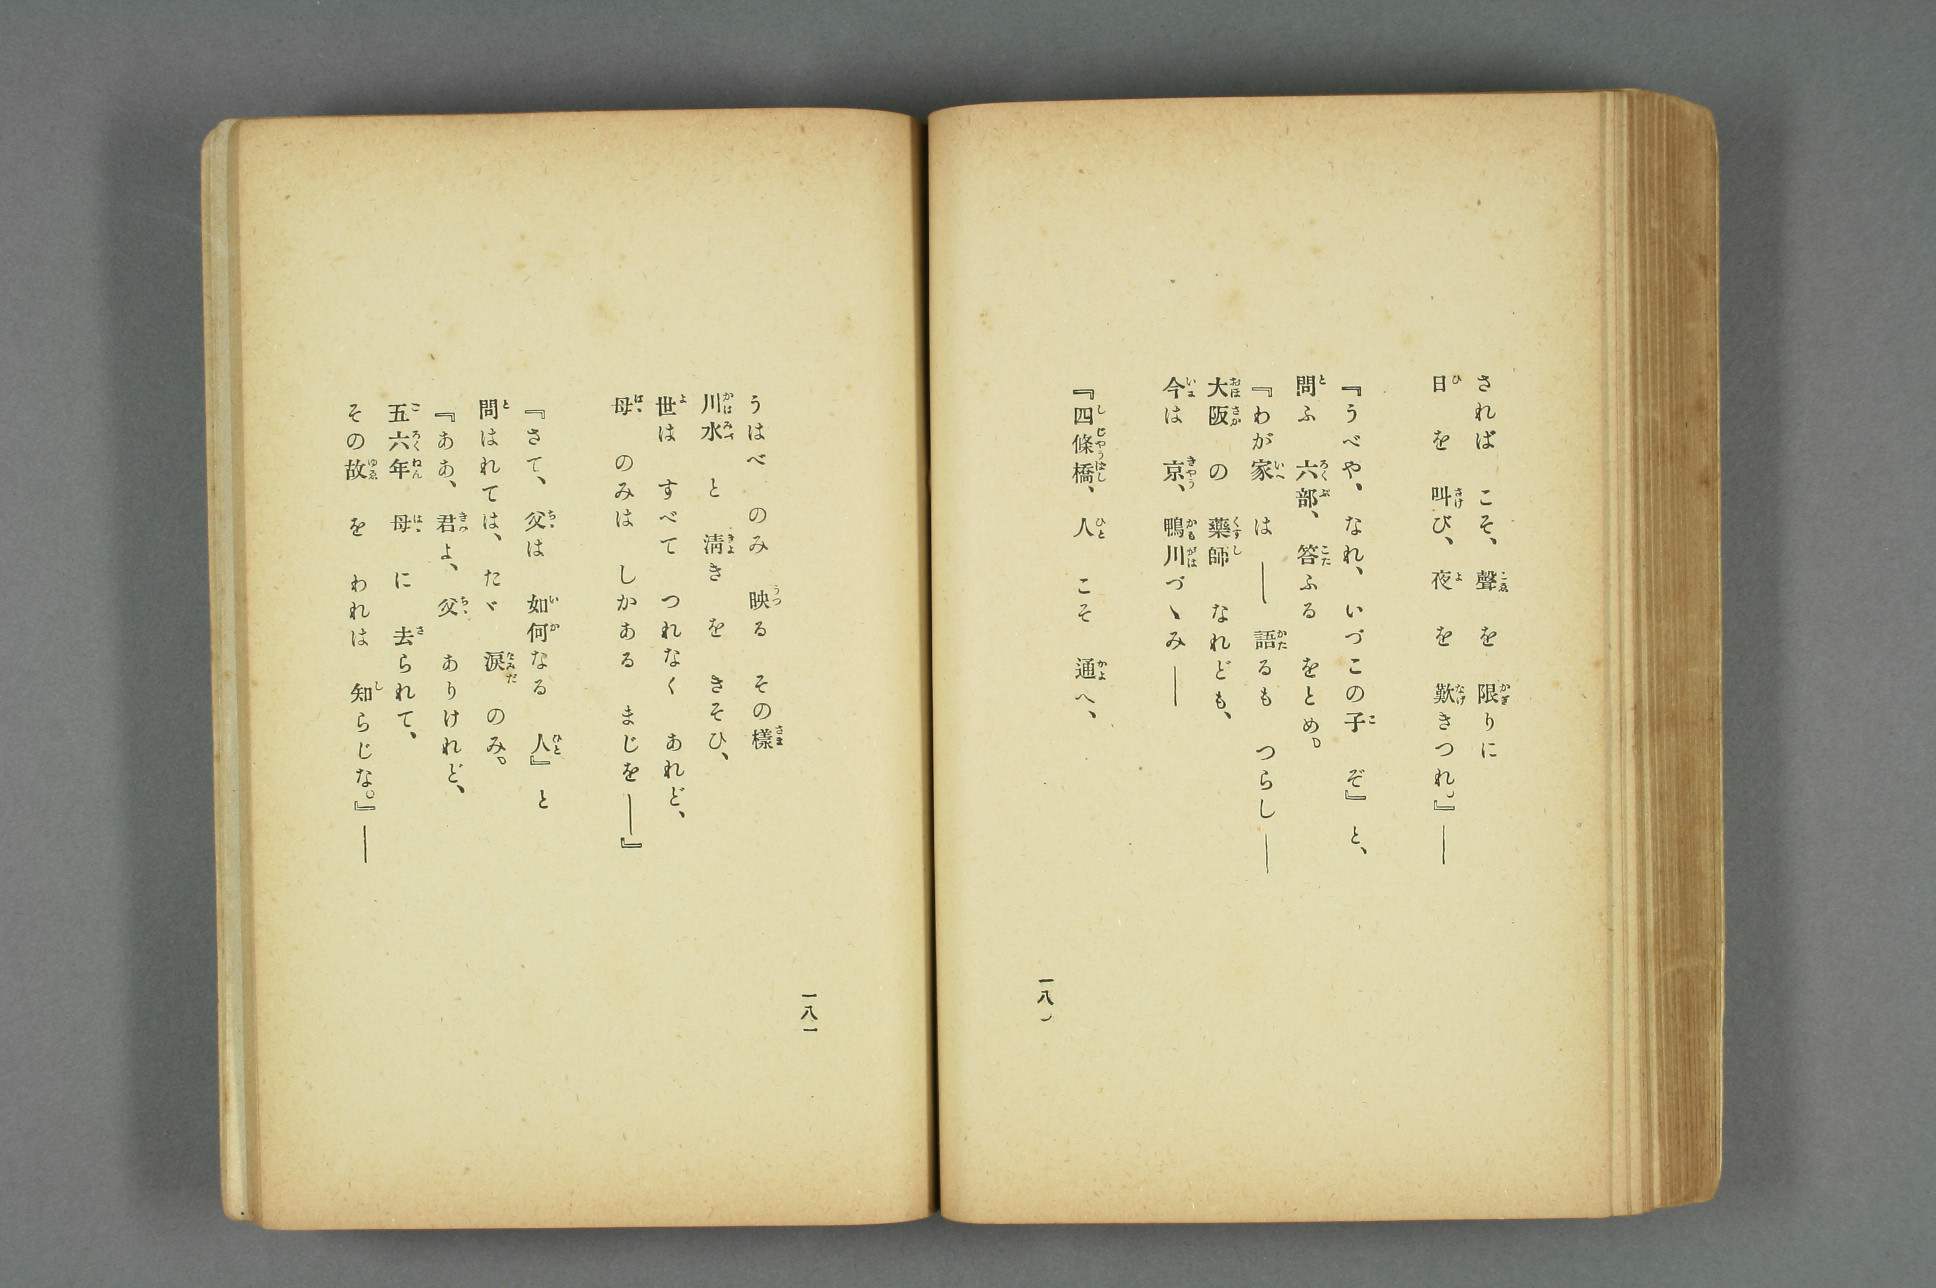 されば こそ、聲 を 限りに
日 を 叫び、夜 を 歎きつれ。』――
『うべや、なれ、いづこの子 ぞ』と、
問ふ 六部、答ふる をとめ。
『わが家 は ―― 語るも つらし ――
大阪 の 藥師 なれども、
今は 京、鴨川づゝみ ――
『四條橋、人 こそ 通へ、
一八
うはべ のみ 映る その樣
川水 と 淸き を きそひ、
世は すべて つれなく あれど、
母 のみは しかある まじを――』
『さて、父は 如何なる 人』と
問はれては、たゞ 涙 のみ。
『ああ、君よ、父 ありけれど、
五六年 母 に 去られて、
その故 を われは 知らじな。』――
一八一